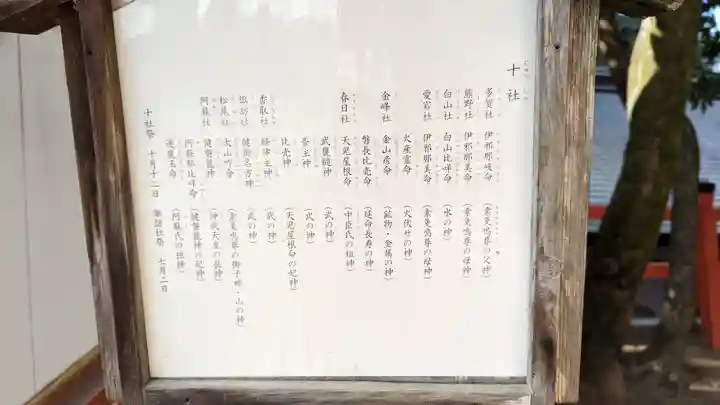 十社
多賀社 伊邪那岐命 (素戔嗚尊の父神)
熊野社 伊邪那美命 (素戔嗚尊の母神)
白山社 白山比咩命 (水の神)
愛宕社 伊邪那美命 (素戔嗚尊の母神)
火産霊命 (火伏せの神)
金峰社 金山彦命 (鉱物・金属の神)
磐長比売命 (延命長寿の神)
春日社 天児屋根命 (中臣氏の祖神)
武甕槌神 (武の神)
斎主神 (武の神)
比売神 (天児屋根命の妃神)
香取社 経津主神 (武の神)
諏訪社 建御名方神 (武の神)
松尾社 大山咋命 (素戔嗚尊の御子神・山の神)
阿蘇社 健磐龍神 (神武天皇の孫神)
阿蘇都比咩命 (健磐龍神の妃神)
速瓶玉命 (阿蘇氏の祖神)
十社祭 十月十二日 諏訪社祭 七月二日